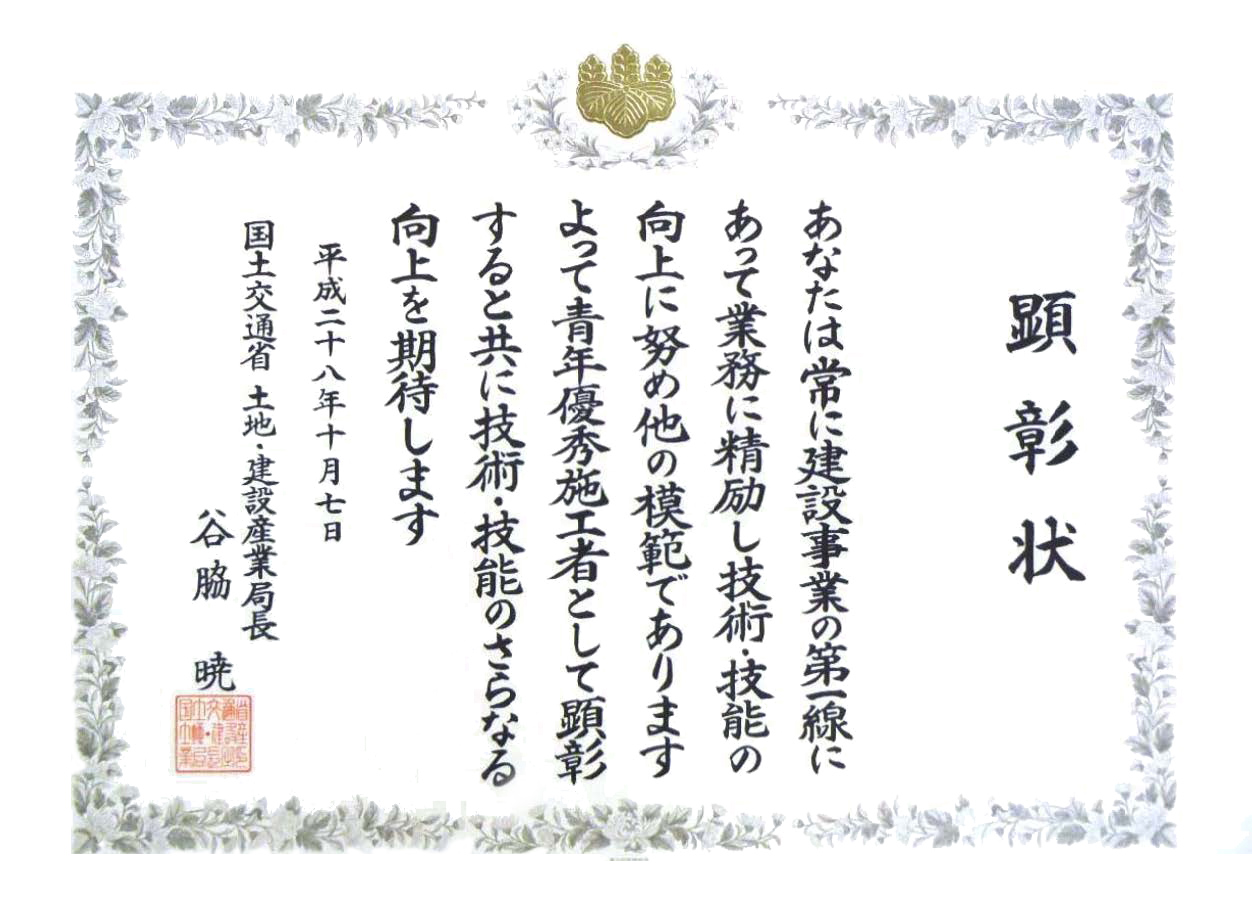 顕彰状
あなたは常に建設事業の第一線に
あって業務に精励し技術・技能の
向上に努め他の模範であります
よって青年優秀施工者として顕彰
すると共に技術・技能のさらなる
向上を期待します
平成二十八年十月七日
国土交通省 土地・建設産業局長
谷脇 暁